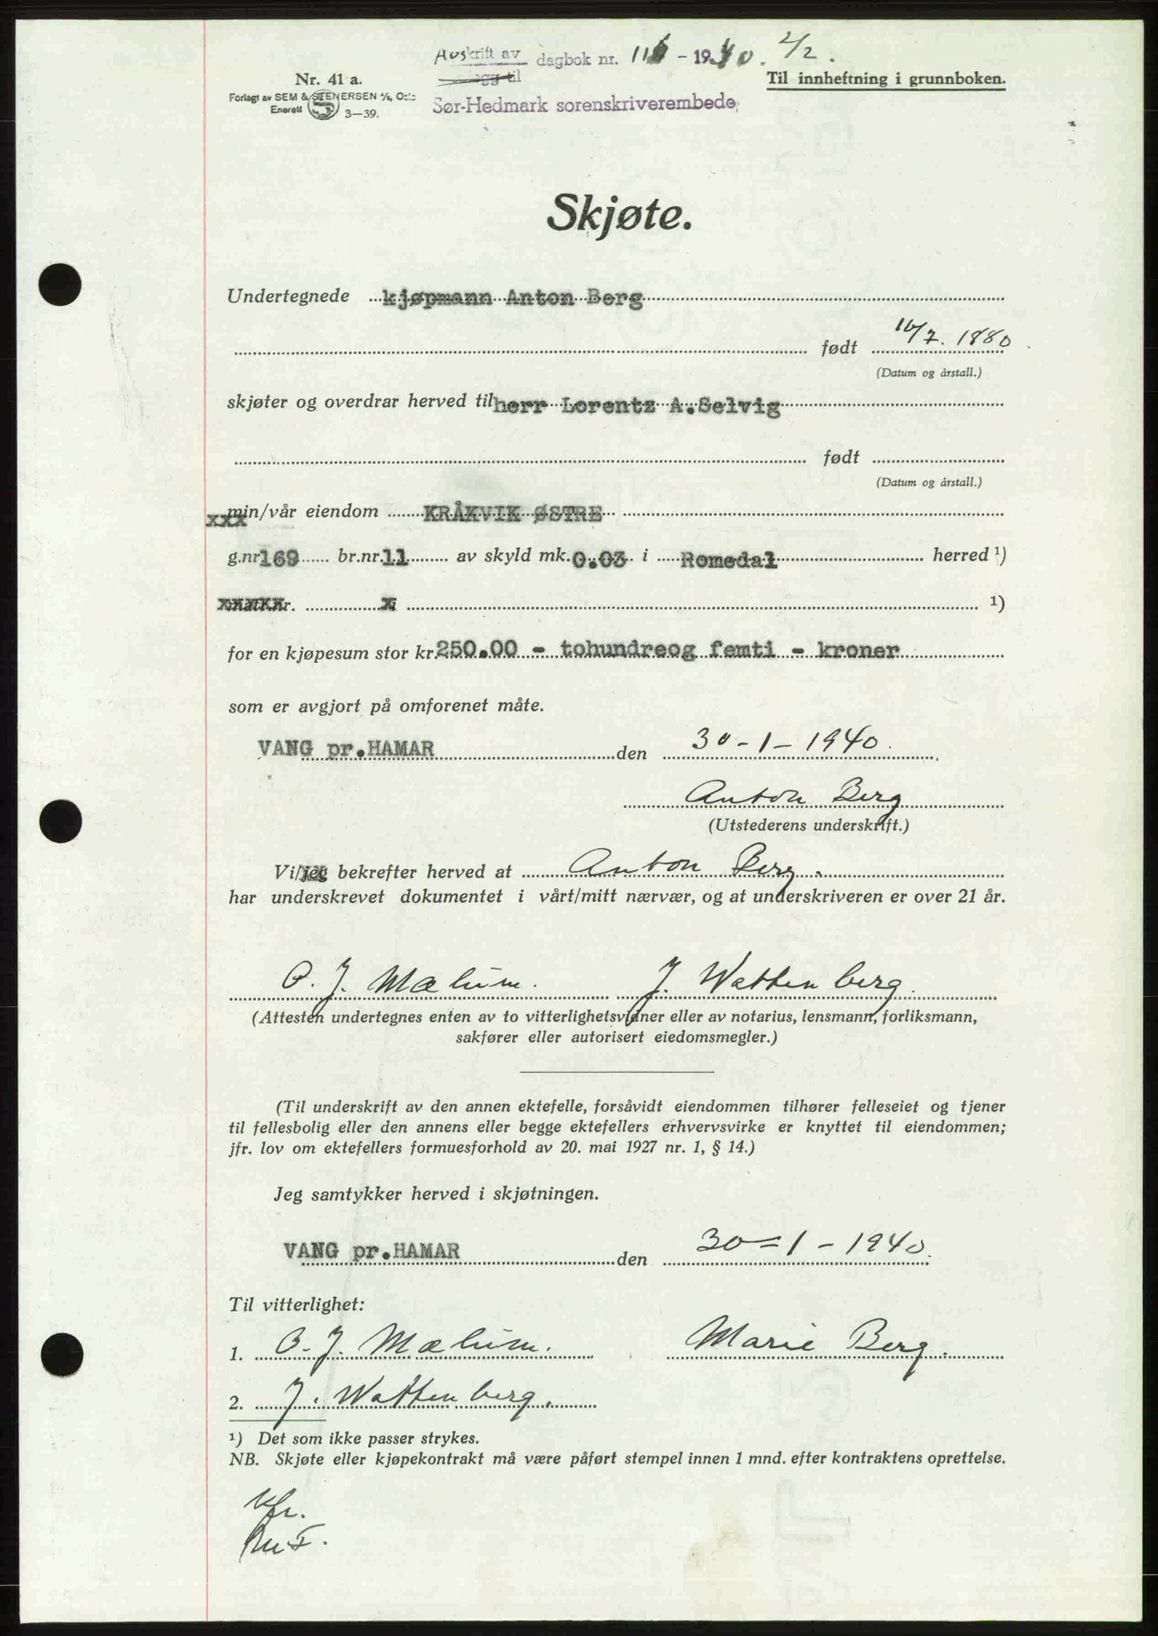 Avskrift av dagbok nr. 116 - 1940. 2/2.
Nr. 41 a.
Til innheftning i grunnboken.
Forlagt av SEM & STENERSEN A/S, Oslo
Enerett 3—39.
Sør-Hedmark sorenskriverembede
Skjøte.
Undertegnede kjøpmann Anton Berg
født 16/7. 1880.
(Datum og årstall.)
skjøter og overdrar herved til herr Lorentz A. Selvig
født
(Datum og årstall.)
xxx min/vår eiendom KRÅKVIK ØSTRE
g.nr. 169 br.nr. 11 av skyld mk. 0.03 i Romedal herred ¹)
¹)
for en kjøpesum stor kr. 250.00 - tohundreog femti - kroner
som er avgjort på omforenet måte.
VANG pr. HAMAR den 30-1-1940.
Anton Berg
(Utstederens underskrift.)
Vi/jeg bekrefter herved at Anton Berg.
har underskrevet dokumentet i vårt/mitt nærvær, og at underskriveren er over 21 år.
O. J. Mælum. J. Wattenberg.
(Attesten undertegnes enten av to vitterlighetsvidner eller av notarius, lensmann, forliksmann,
sakfører eller autorisert eiedomsmegler.)
(Til underskrift av den annen ektefelle, forsåvidt eiendommen tilhører felleseiet og tjener
til fellesbolig eller den annens eller begge ektefellers erhvervsvirke er knyttet til eiendommen;
jfr. lov om ektefellers formuesforhold av 20. mai 1927 nr. 1, § 14.)
Jeg samtykker herved i skjøtningen.
VANG pr. HAMAR den 30-1-1940.
Til vitterlighet:
1. O. J. Mælum. Marie Berg.
2. J. Wattenberg.
¹) Det som ikke passer strykes.
NB. Skjøte eller kjøpekontrakt må være påført stempel innen 1 mnd. efter kontraktens oprettelse.